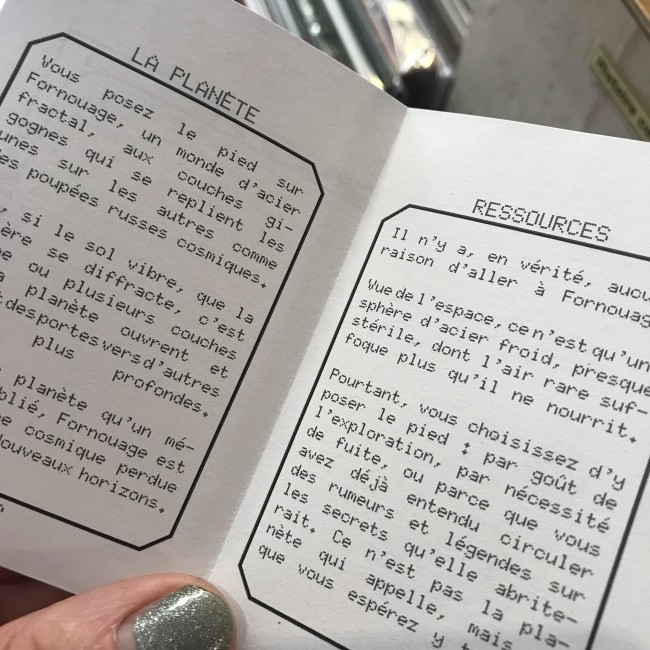 LA PLANÈTE
Vous posez le pied sur
Fornouage, un monde d'acier
fractal, aux couches gi-
gognes qui se replient les
unes sur les autres comme
des poupées russes cosmiques.
, si le sol vibre, que la
ère se diffracte, c'est
ou plusieurs couches
planète ouvrent et
des portes vers d'autres
plus profondes.
planète qu'un mé-
blié, Fornouage est
cosmique perdue
nouveaux horizons.
RESSOURCES
Il n'y a, en vérité, aucu
raison d'aller à Fornouag
Vue de l'espace, ce n'est qu'un
sphère d'acier froid, presque
stérile, dont l'air rare suf-
foque plus qu'il ne nourrit.
Pourtant, vous choisissez d'y
poser le pied : par goût de
l'exploration, par nécessité
de fuite, ou parce que vous
avez déjà entendu circuler
des rumeurs et légendes sur
les secrets qu'elle abrite-
rait. Ce n'est pas la pla-
nète qui appelle, mais
que vous espérez y